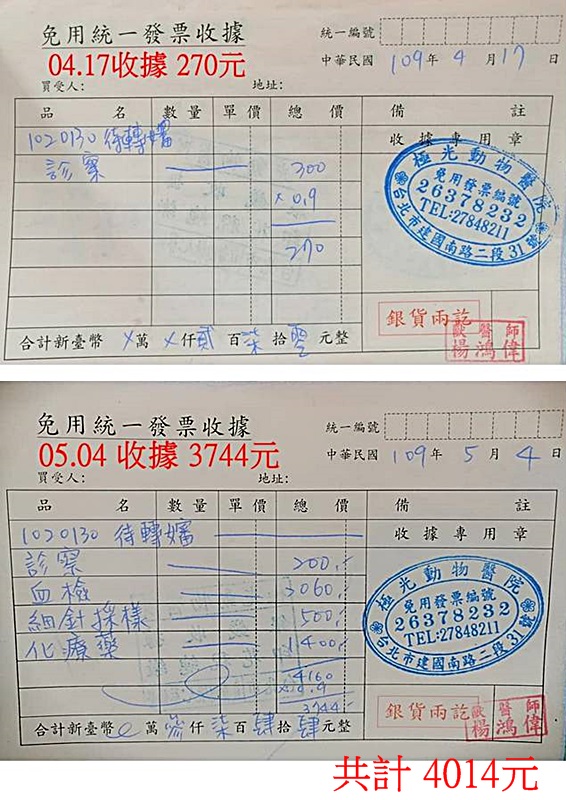 免用統一發票收據
統一編號
04.17收據 270元
中華民國 109年 4 月 17 日
買受人: 地址:
品 名 數量 單價 總 價 備 註
1020130 待轉
收據專用章
診察 300
×0.9
270
極光動物醫院
免用發票編號
26378232
TEL:27848211
台北市建國南路二段31號
銀貨兩訖
獸醫師
楊鴻偉
合計新臺幣 ×萬 ×仟 貳百 柒拾 零元整
免用統一發票收據
統一編號
05.04 收據 3744元
中華民國 109年 5 月 4 日
買受人: 地址:
品 名 數量 單價 總 價 備 註
1020130 待轉
收據專用章
診察 200.-
血檢 2060.-
細針採樣 500.-
化療藥 1400.-
4160
×0.9
3744.-
極光動物醫院
免用發票編號
26378232
TEL:27848211
台北市建國南路二段31號
銀貨兩訖
獸醫師
楊鴻偉
合計新臺幣 萬 參仟 柒百 肆拾 肆元整
共計 4014元